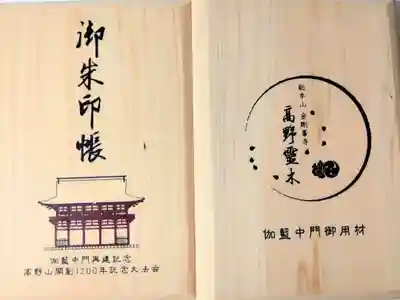 御朱印帳
伽藍中門再建記念
高野山開創1200年記念大法会
総本山 金剛峯寺
高野霊木
伽藍中門御用材